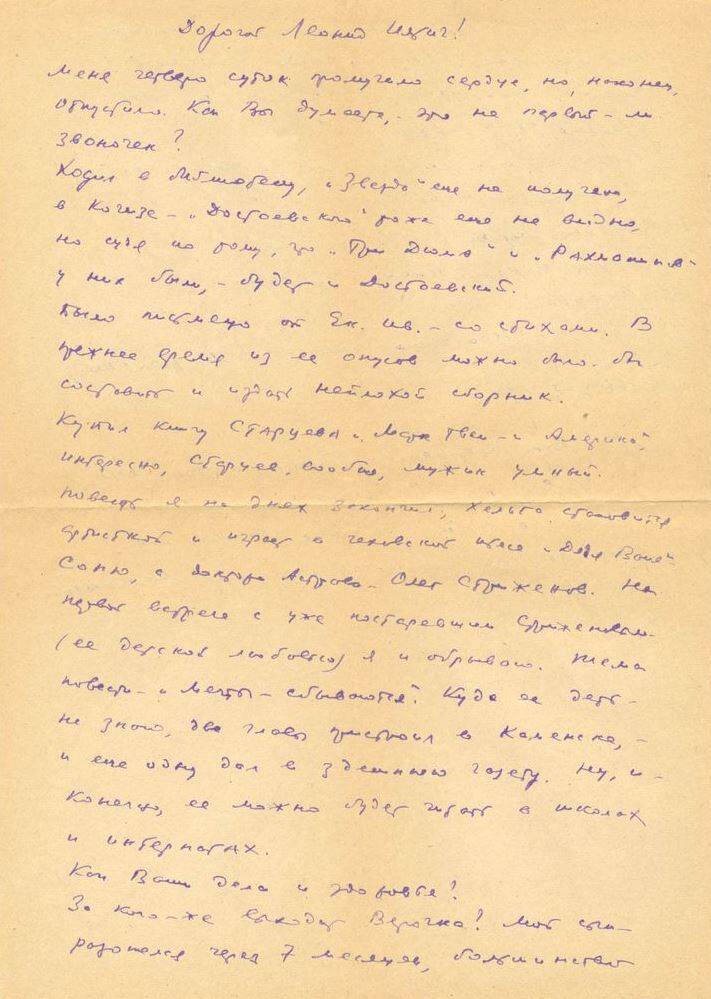 Дорогой Леонид Ицич!
Меня четверо суток промучило сердце, но, наконец,
отпустило. Как Вы думаете, - это не первый-ли
звоночек?
Ходил в библиотеку, "Звезда" еще не получена,
в Когизе - "Достоевского" тоже еще не видно,
но судя по тому, что "Три Дюма" и "Рахманинов"
у них были, - будет и Достоевский.
Было письмецо от Ек. Ив. - со стихами. В
прежнее время из ее опусов можно было-бы
составить и издать неплохой сборник.
Купил книгу Старцева "Марк Твен и Америка",
интересно, Старцев, вообще, мужик умный.
Повесть я на днях закончил, Хельга становится
артисткой и играет в чеховской пьесе "Дядя Ваня"
Соню, а доктора Астрова - Олег Стриженов. На
первой встрече с уже постаревшим Стриженовым -
(ее детской любовью) я и обрываю. Тема
повести - "Мечты - сбываются". Куда ее деть -
не знаю, две главы пристроил в Каменске, -
и еще одну дал в здешнюю газету. Ну, и -
конечно, ее можно будет читать в школах
и интернатах.
Как Ваши дела и здоровье?
За кого-же выходит Верочка? Мой сын -
развелся через 7 месяцев, большинство